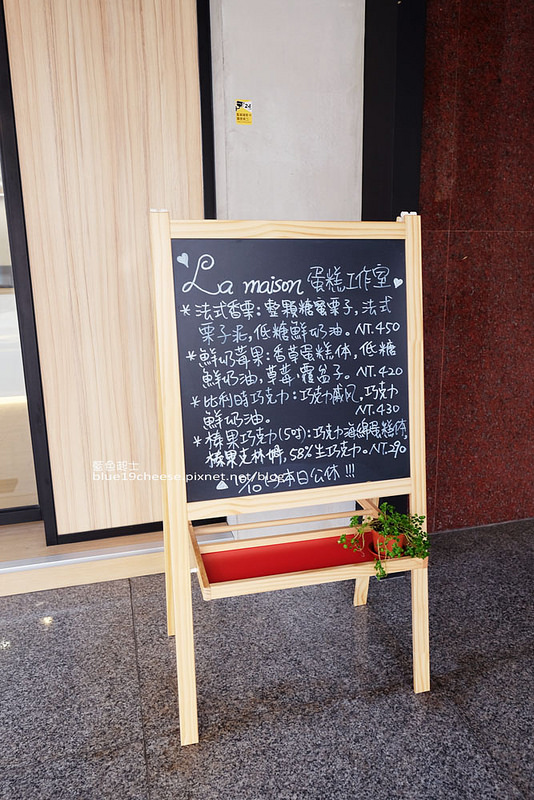 24
La maison 蛋糕工作室
*法式香栗：整顆糖蜜栗子，法式
栗子泥，低糖鮮奶油。NT.450
*鮮奶莓果：香草蛋糕体，低糖
鮮奶油，草莓，覆盆子。NT.420
*比利時巧克力：巧克力戚风，巧克力
鮮奶油。NT.430
*榛果巧克力(5吋)：巧克力海綿蛋糕体，
榛果克林姆，58%生巧克力。NT.290
10本日公休!!!
藍色起士
blue19cheese.pixnet.net/blog